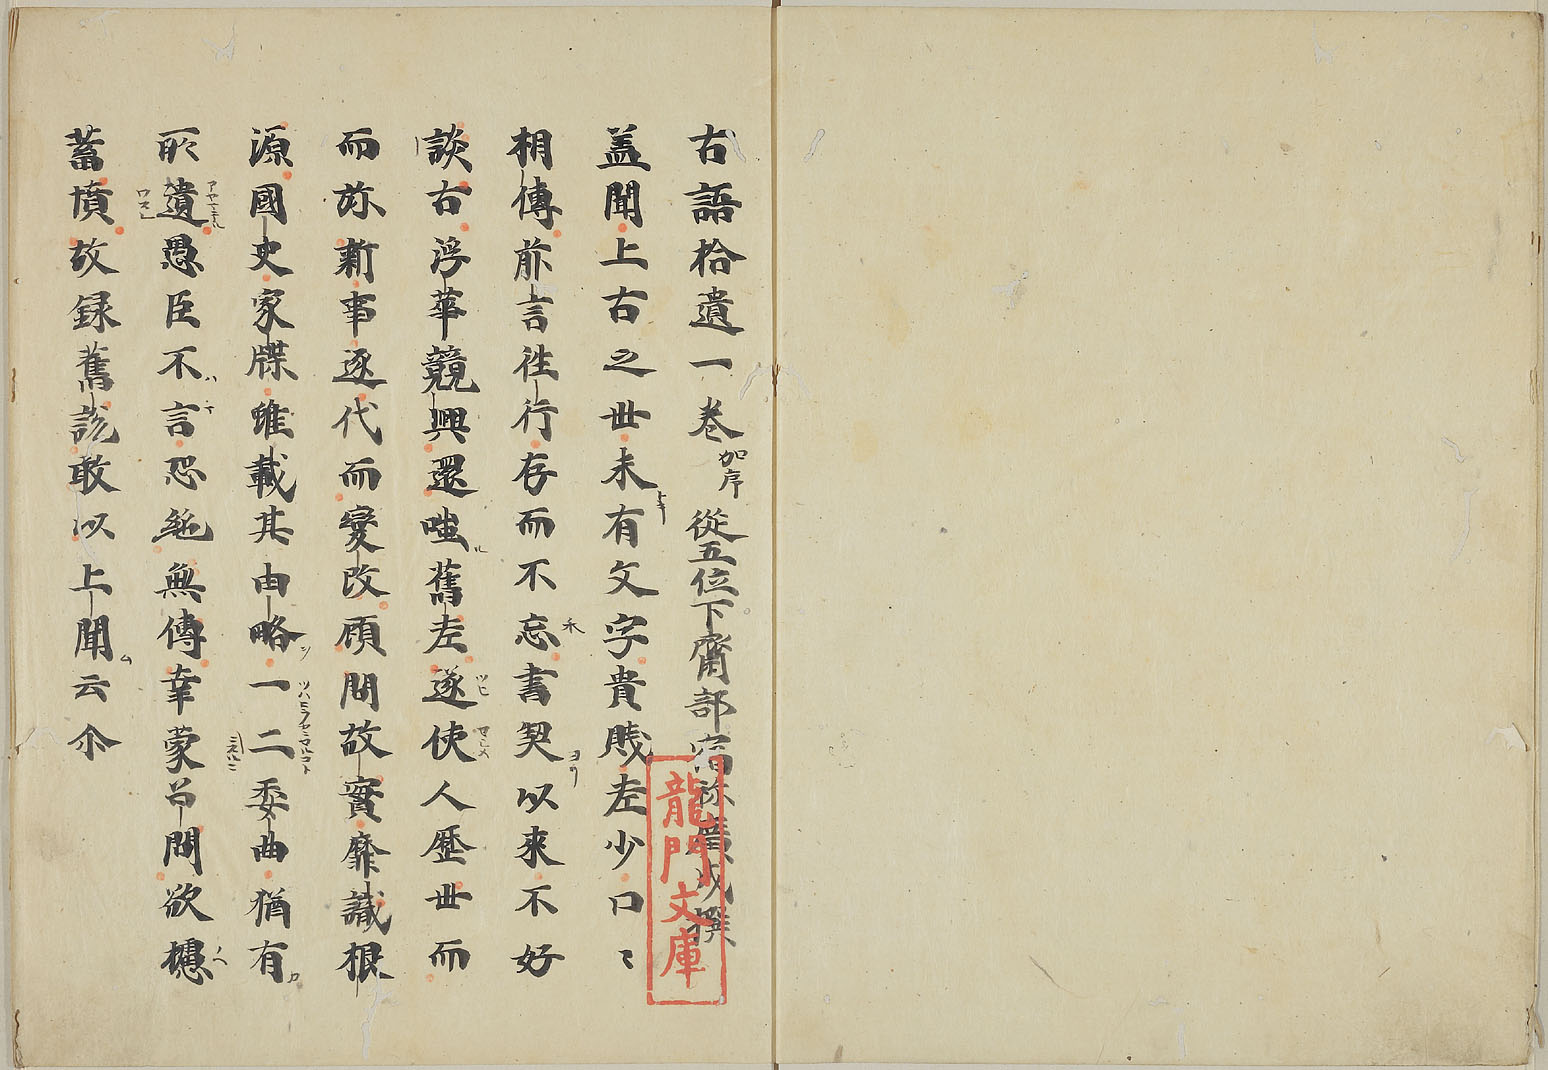 古語拾遺一巻 加序 從五位下齋部宿祢廣成撰
盖聞上古之世未有文字貴賤老少口〻
相傳前言往行存而不忘書契以來不好
談古浮華競興還嗤舊老遂使人歴世而
而弥新事逐代而變改顧問故實靡識根
源國史家牒雖載其由略一二委曲猶有
所遺愚臣不言恐絶無傳幸蒙召問欲攄
蓄憤故録舊説敢以上聞云尒
龍門文庫